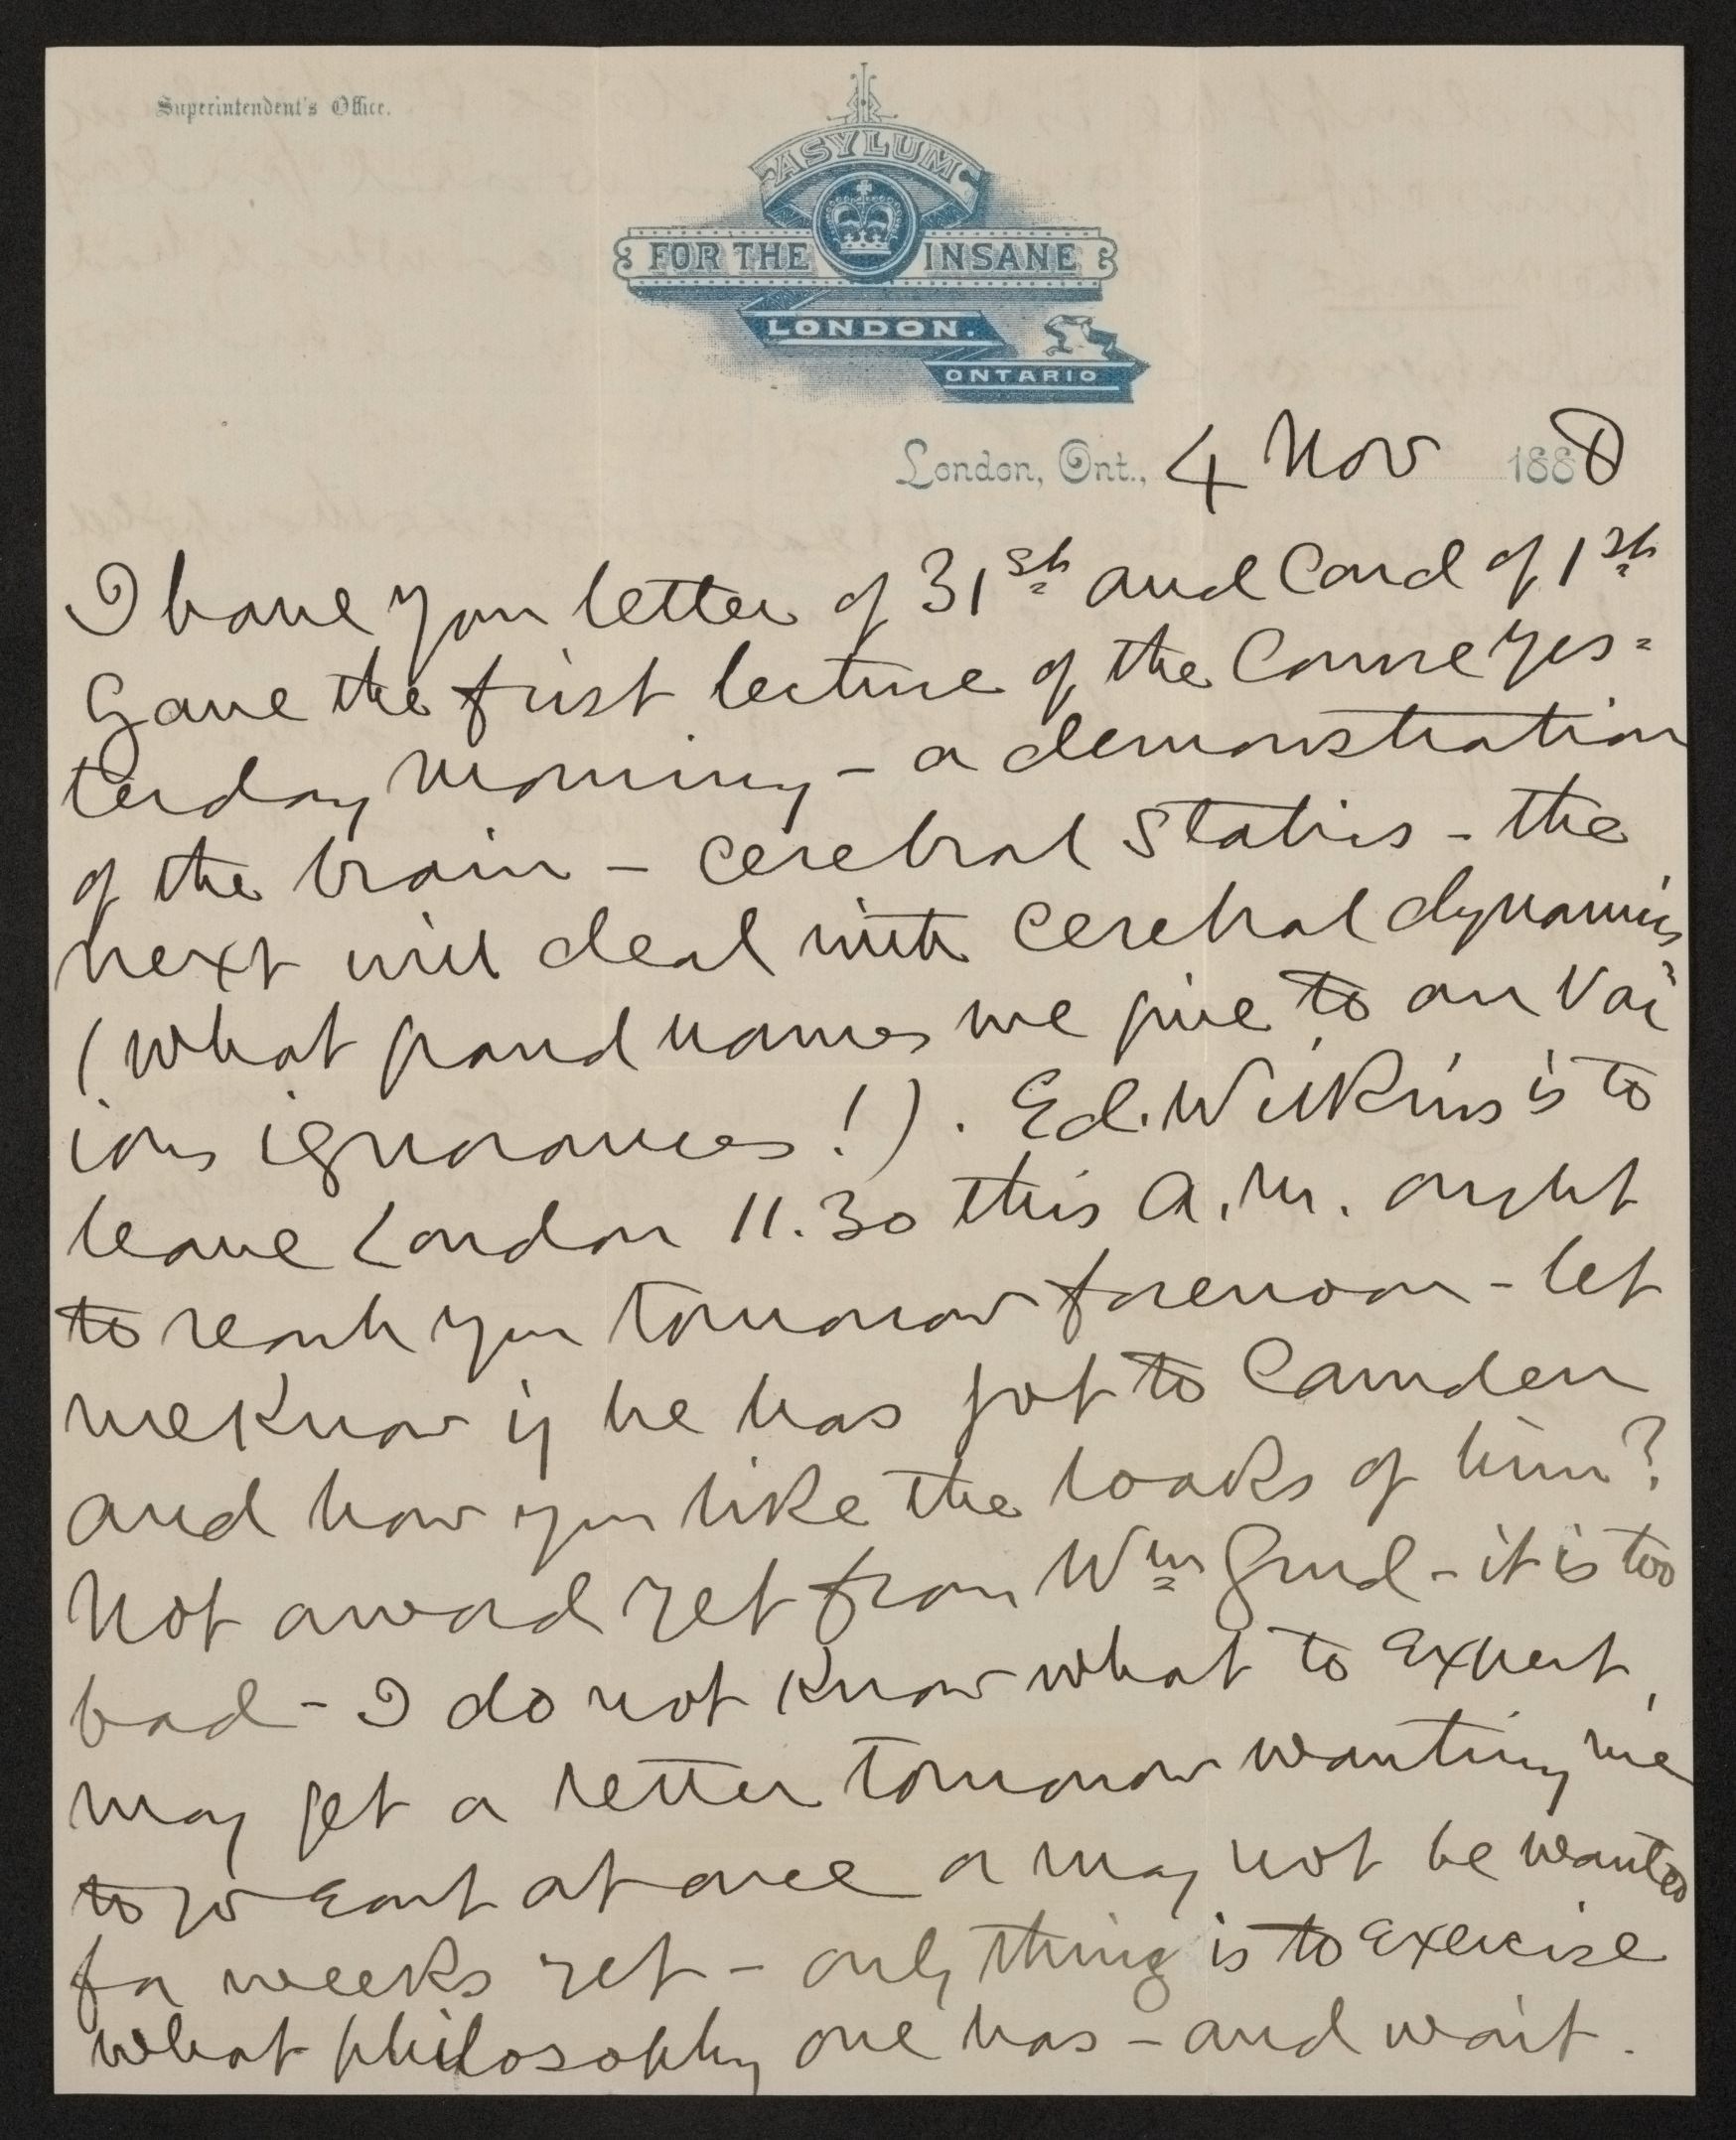 Superintendent's Office.
ASYLUM
FOR THE INSANE
LONDON.
ONTARIO
London, Ont., 4 Nov 1888
I have your letter of 31st and Card of 1st
Gave the first lecture of the Course yes=
terday morning – a demonstration
of the brain – cerebral statics – the
next will deal with cerebral dynamics
(what grand names we give to our var
ious ignorances!). Ed. Wilkins is to
leave London 11.30 this a.m. ought
to reach you tomorrow forenoon – let
me know if he has got to Camden
and how you like the looks of him?
Not a word yet from Wm Gurd – it is too
bad – I do not know what to expect,
may get a letter tomorrow wanting me
to go East at once or may not be wanted
for weeks yet – only thing is to exercise
what philosophy one has – and wait.